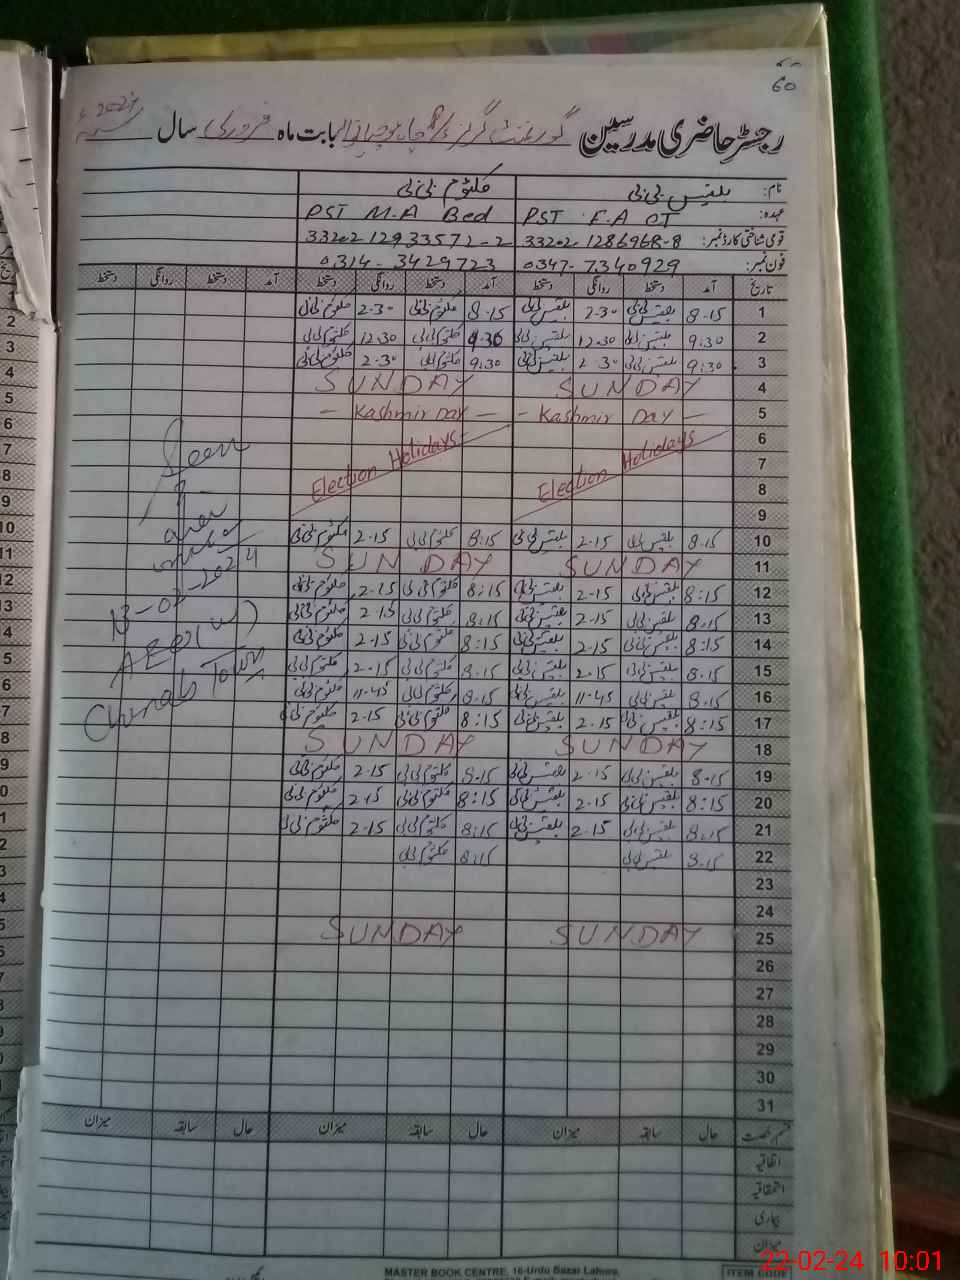 60
رجسٹر حاضری مدرسین گورنمنٹ گرلز بابت ماہ فروری سال 2024
نام: بلقیس بی بی کلثوم بی بی
عہدہ: PST F.A CT PST M.A Bed
قومی شناختی کارڈ نمبر: 33202 1286968-8 33202 12933572-2
فون نمبر: 0347-7340929 0314-3429723
تاریخ آمد دستخط روانگی دستخط آمد دستخط روانگی دستخط آمد دستخط روانگی دستخط
1 8-15 بلقیس بی بی 2-30 بلقیس بی بی 8-15 کلثوم بی بی 2-30 کلثوم بی بی
2 9:30 بلقیس بی بی 12-30 بلقیس بی بی 9-30 کلثوم بی بی 12-30 کلثوم بی بی
3 9:30 بلقیس بی بی 2-30 بلقیس بی بی 9:30 کلثوم بی بی 2-30 کلثوم بی بی
4 SUNDAY SUNDAY
5 - Kashmir DAY - - Kashmir DAY -
6
7 Election Holidays Election Holidays
8
9
10 8-15 بلقیس بی بی 2-15 بلقیس بی بی 8-15 کلثوم بی بی 2-15 کلثوم بی بی
11 SUNDAY SUNDAY
12 8:15 بلقیس بی بی 2-15 بلقیس بی بی 8:15 کلثوم بی بی 2-15 کلثوم بی بی
13 8-15 بلقیس بی بی 2-15 بلقیس بی بی 8-15 کلثوم بی بی 2-15 کلثوم بی بی
14 8:15 بلقیس بی بی 2-15 بلقیس بی بی 8:15 کلثوم بی بی 2-15 کلثوم بی بی
15 8-15 بلقیس بی بی 2-15 بلقیس بی بی 8-15 کلثوم بی بی 2-15 کلثوم بی بی
16 8-15 بلقیس بی بی 11-45 بلقیس بی بی 8-15 کلثوم بی بی 11-45 کلثوم بی بی
17 8:15 بلقیس بی بی 2-15 بلقیس بی بی 8:15 کلثوم بی بی 2-15 کلثوم بی بی
18 SUNDAY SUNDAY
19 8-15 بلقیس بی بی 2-15 بلقیس بی بی 8-15 کلثوم بی بی 2-15 کلثوم بی بی
20 8:15 بلقیس بی بی 2-15 بلقیس بی بی 8:15 کلثوم بی بی 2-15 کلثوم بی بی
21 8-15 بلقیس بی بی 2-15 بلقیس بی بی 8:15 کلثوم بی بی 2-15 کلثوم بی بی
22 8-15 بلقیس بی بی 8:15 کلثوم بی بی
23
24
25 SUNDAY SUNDAY
26
27
28
29
30
31
Seen
13-02-2024
AEO(W)
Chenab Town
قسم رخصت حال سابقہ میزان حال سابقہ میزان حال سابقہ میزان
اتفاقیہ
استحقاقیہ
بیماری
میزان
MASTER BOOK CENTRE, 16-Urdu Bazar Lahore,
ITEM CODE
22-02-24 10:01